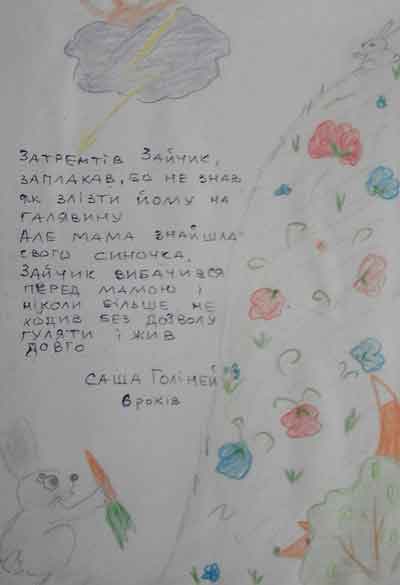 Затремтів Зайчик,
заплакав, бо не знав
як злізти йому на
галявину
Але мама знайшла
свого синочка.
Зайчик вибачився
перед мамою і
ніколи більше не
ходив без дозволу
гуляти і жив
довго
Саша Голіней
6 років